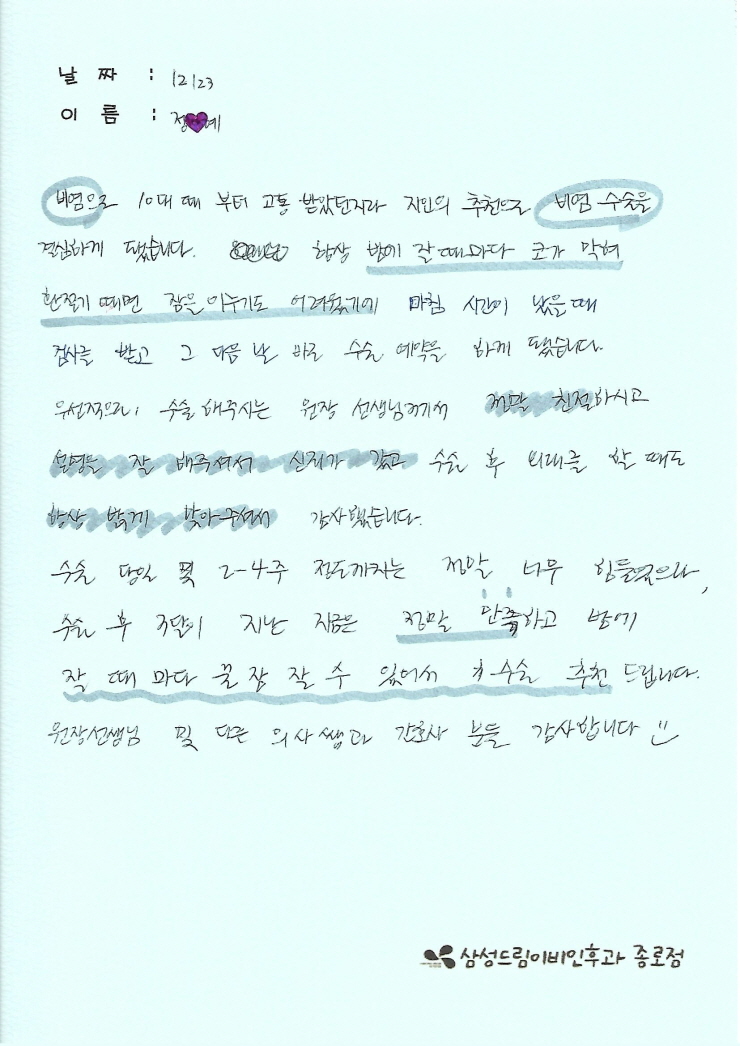 날 짜 : 12/23
이 름 : 정💜예
비염으로 10대 때 부터 고통 받았던지라 지인의 추천으로 비염 수술을
결심하게 됐습니다. 항상 밤에 잘 때마다 코가 막혀
환절기 때면 잠을 이루기도 어려웠기에 마침 시간이 났을 때
검사를 받고 그 다음 날 바로 수술 예약을 하게 됐습니다.
우선적으로, 수술 해주시는 원장 선생님께서 정말 친절하시고
설명을 잘 해주셔서 신뢰가 갔고 수술 후 외래를 할 때도
항상 밝게 맞아주셔서 감사했습니다.
수술 당일 및 2-4주 정도까지는 정말 너무 힘들었으나,
수술 후 3달이 지난 지금은 정말 만족하고 밤에
잘 때 마다 꿀잠 잘 수 있어서 수술 추천 드립니다.
원장선생님 및 다른 의사쌤과 간호사 분들 감사합니다
삼성드림이비인후과 종로점